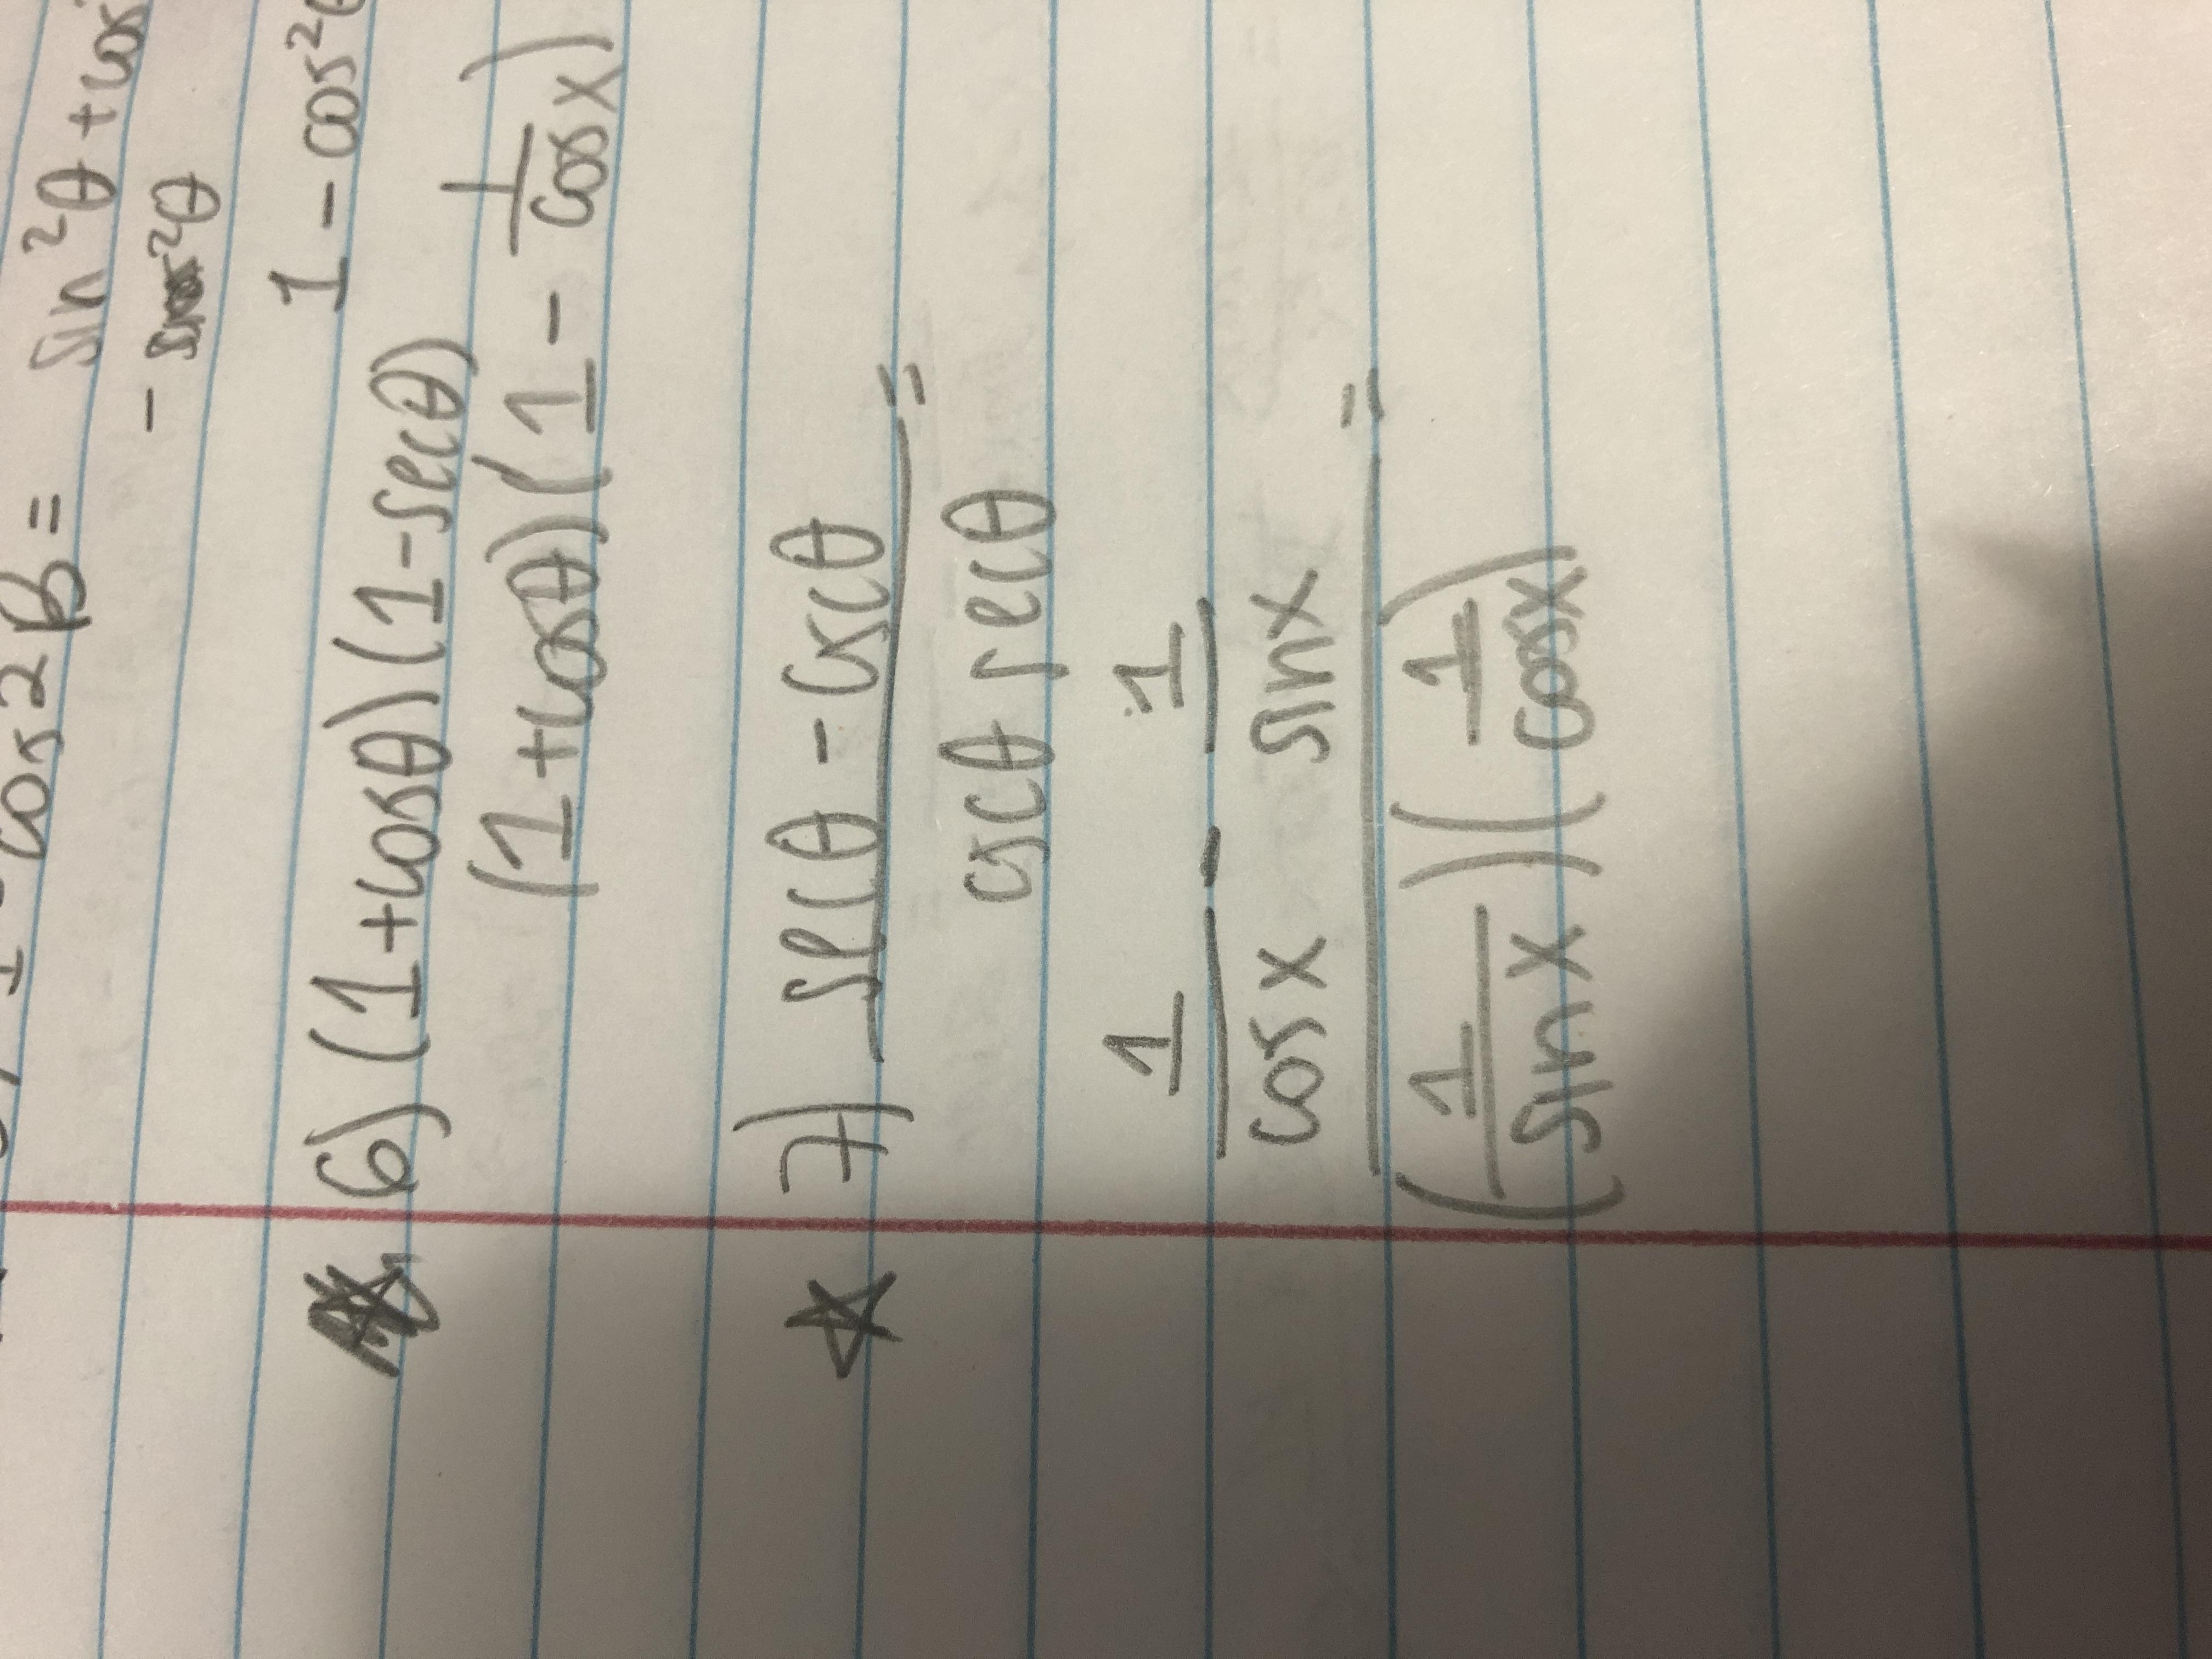 cos 2B = sin²θ + cos
- sin²θ
1 - cos²θ
6) (1+cosθ)(1-secθ)
(1+cosθ)(1 - 1/cosx)
7) secθ - cscθ =
cscθ secθ
1/cosx - 1/sinx =
(1/sinx)(1/cosx)